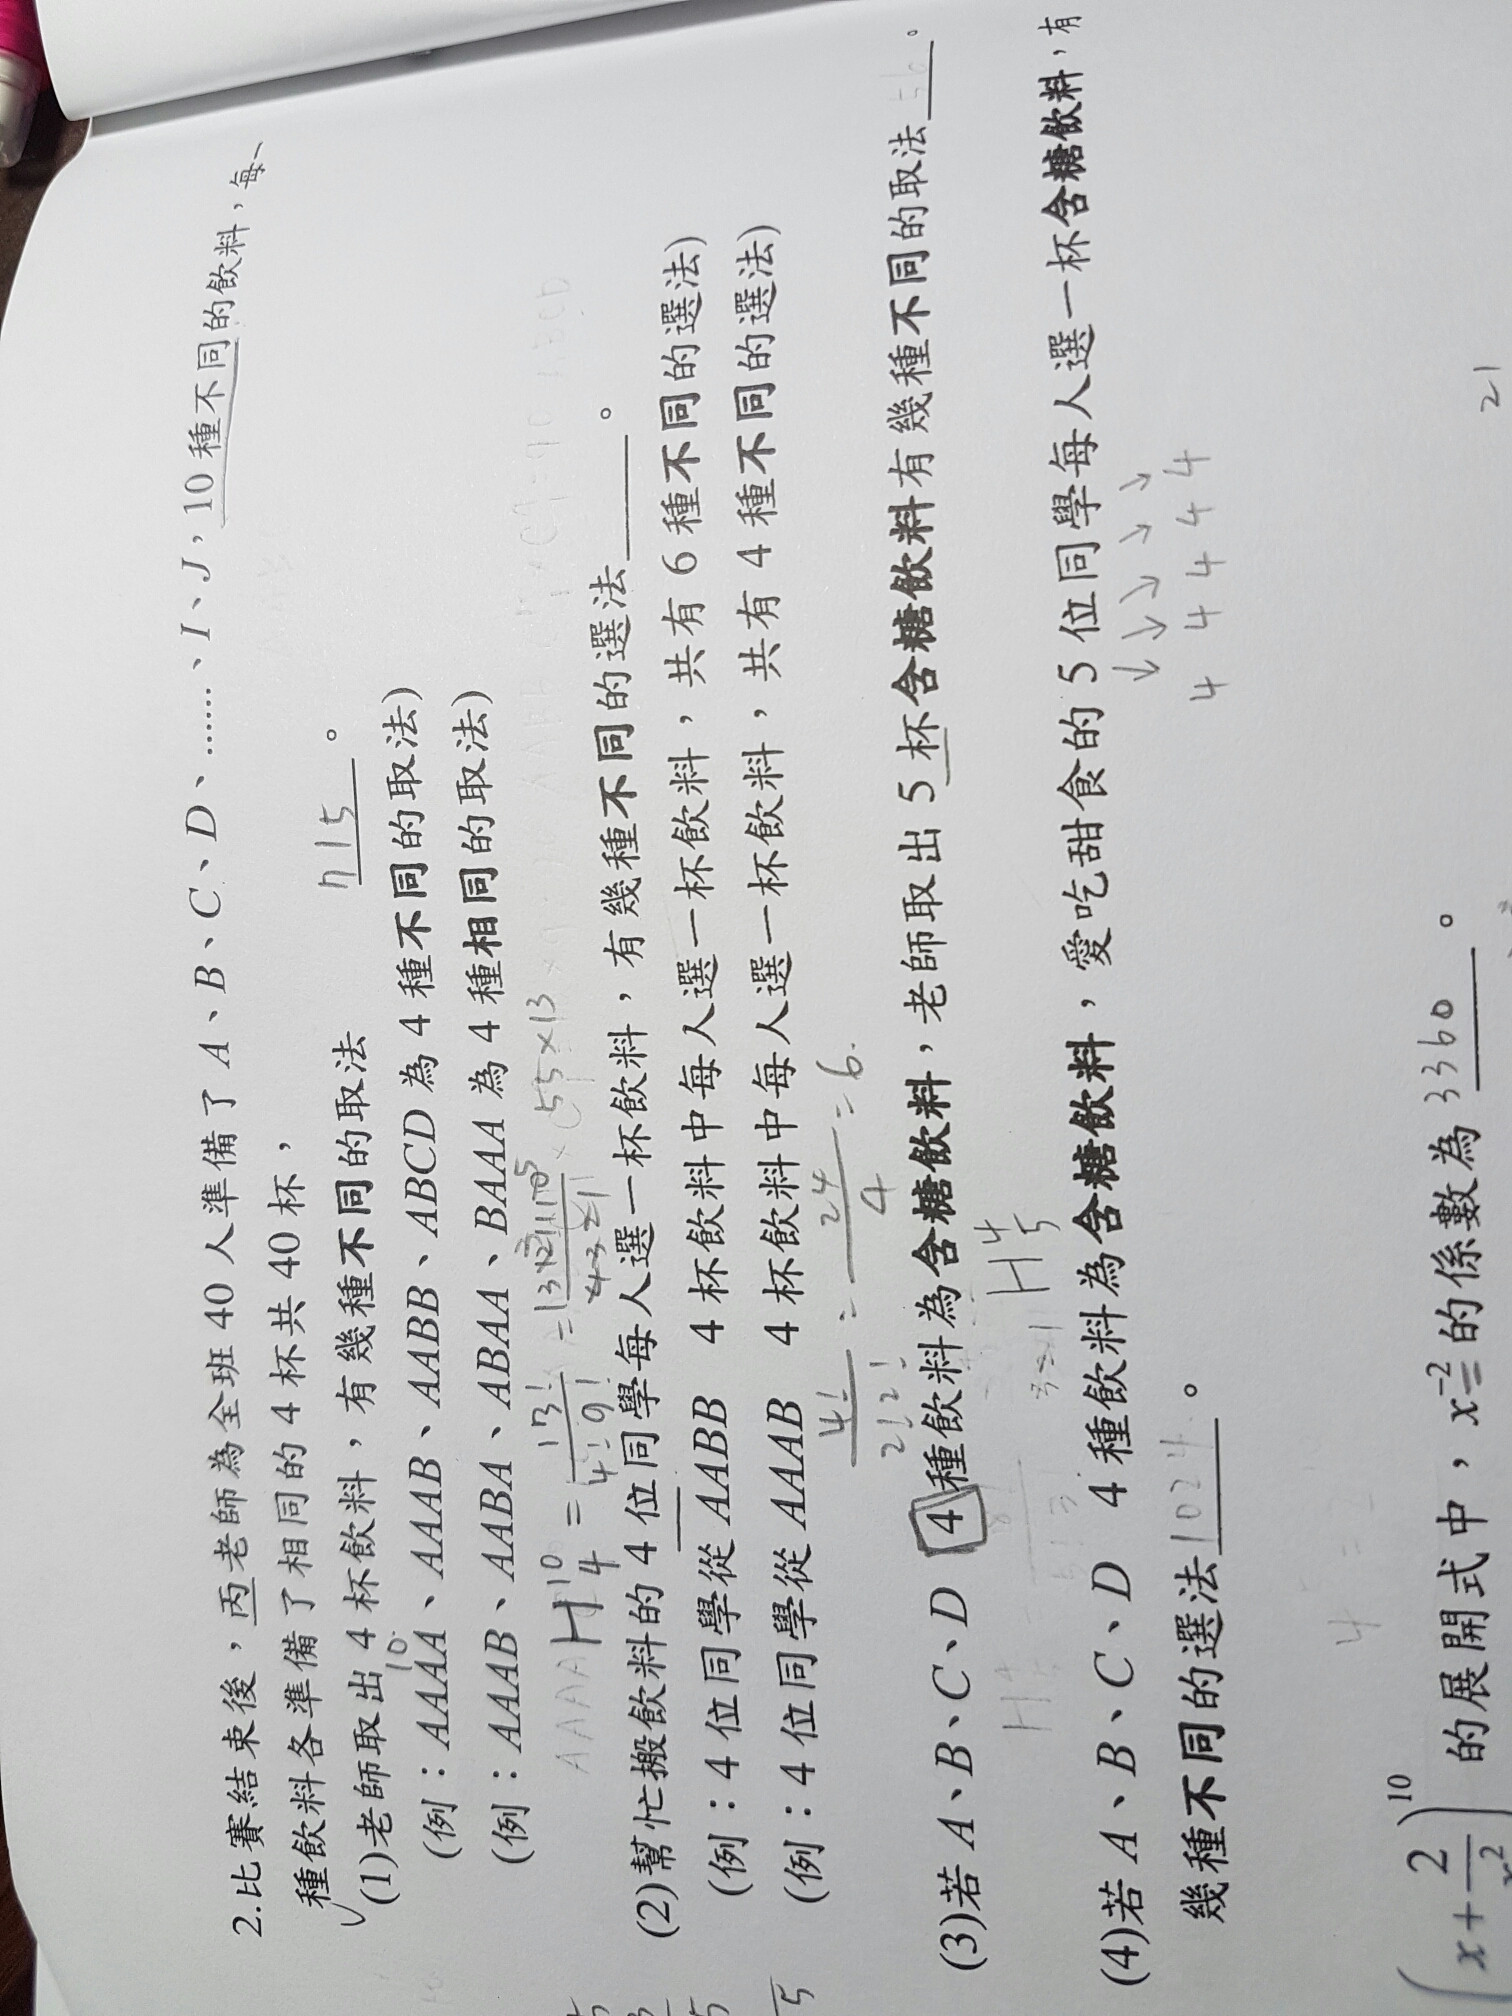 2.比賽結束後，丙老師為全班 40 人準備了 A、B、C、D、……、I、J，10 種不同的飲料，每一
種飲料各準備了相同的 4 杯共 40 杯，
(1)老師取出 4 杯飲料，有幾種不同的取法 715 。
(例：AAAA、AAAB、AABB、ABCD 為 4 種不同的取法)
(例：AAAB、AABA、ABAA、BAAA 為 4 種相同的取法)
(2)幫忙搬飲料的 4 位同學每人選一杯飲料，有幾種不同的選法 。
(例：4 位同學從 AABB 4 杯飲料中每人選一杯飲料，共有 6 種不同的選法)
(例：4 位同學從 AAAB 4 杯飲料中每人選一杯飲料，共有 4 種不同的選法)
4!/2!2! = 24/4 = 6.
(3)若 A、B、C、D 4 種飲料為含糖飲料，老師取出 5 杯含糖飲料有幾種不同的取法 56 。
(4)若 A、B、C、D 4 種飲料為含糖飲料，愛吃甜食的 5 位同學每人選一杯含糖飲料，有
4 4 4 4 4
幾種不同的選法 1024 。
21
(x+2/x²)¹⁰ 的展開式中，x⁻² 的係數為 3360 。